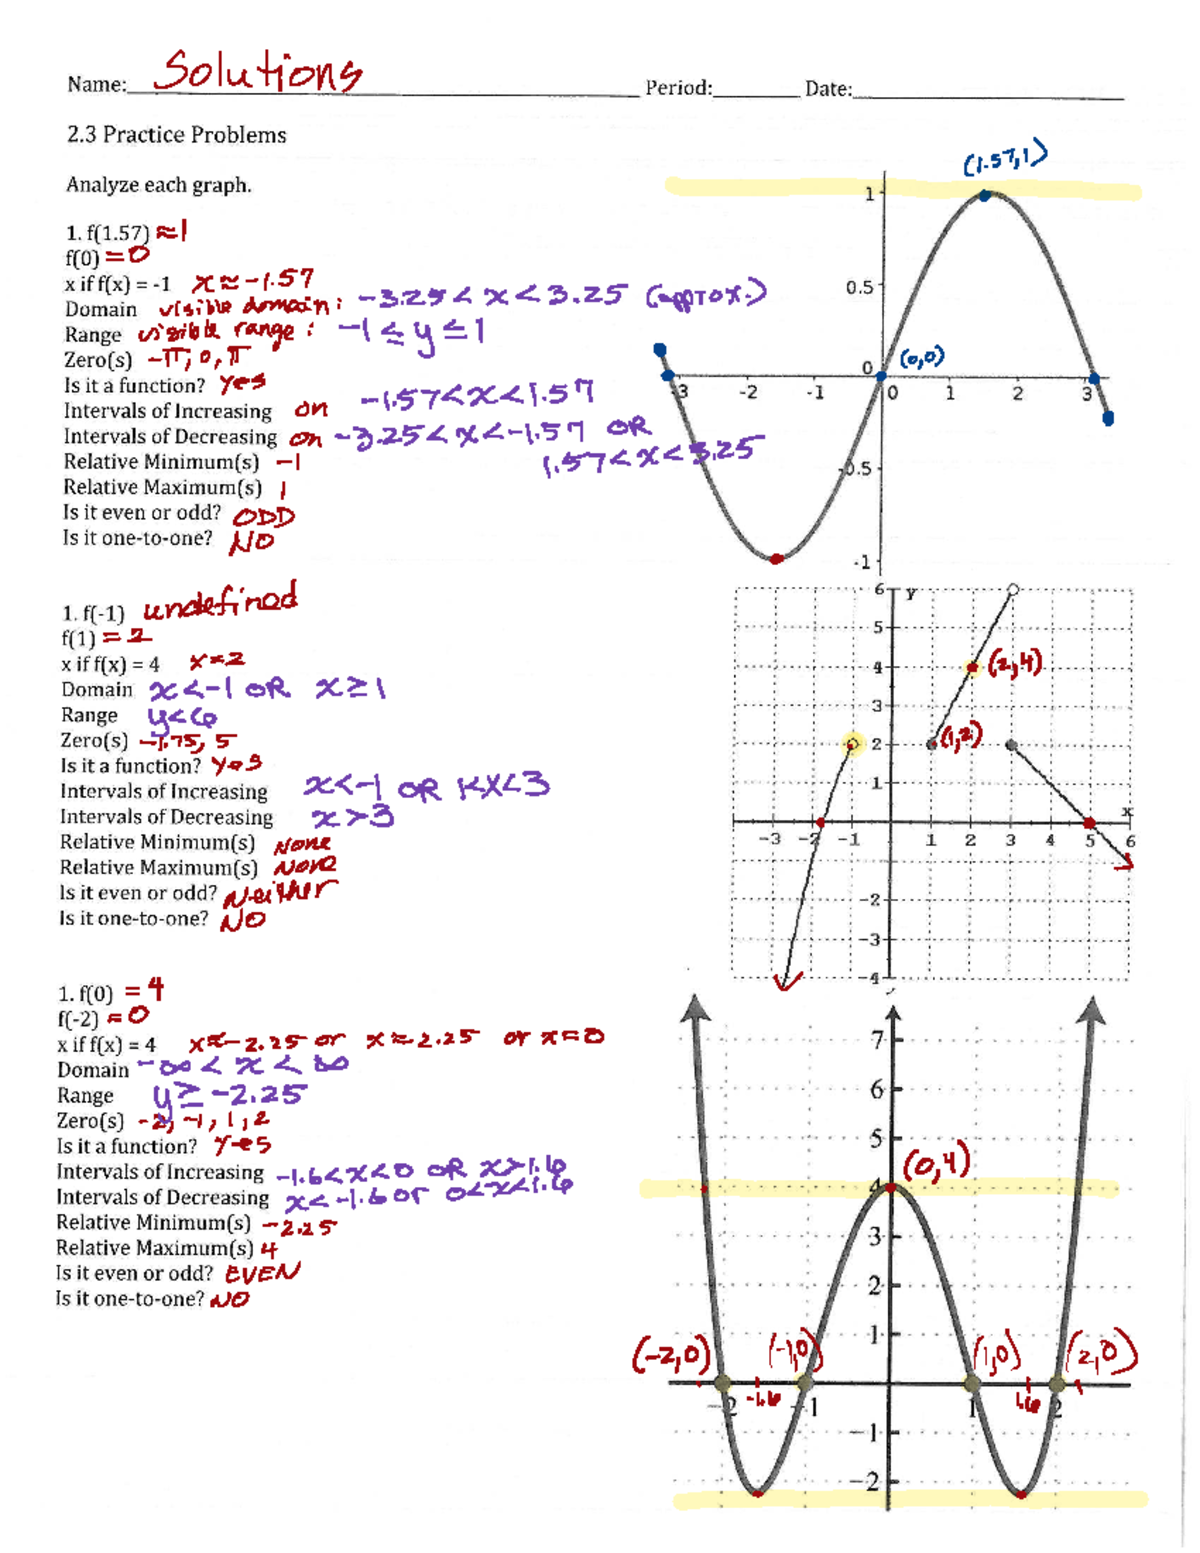 Name: Solutions Period: Date:
2.3 Practice Problems
Analyze each graph.
1. f(1.57) ≈1
f(0) = 0
x if f(x) = -1 x ≈ -1.57
Domain visible domain: -3.25 < x < 3.25 (approx.)
Range visible range: -1 ≤ y ≤ 1
Zero(s) -π, 0, π
Is it a function? Yes
Intervals of Increasing on -1.57 < x < 1.57
Intervals of Decreasing on -3.25 < x < -1.57 OR
1.57 < x < 3.25
Relative Minimum(s) -1
Relative Maximum(s) 1
Is it even or odd? ODD
Is it one-to-one? NO
(1.57, 1)
1
0.5
(0,0)
0
-3 -2 -1 0 1 2 3
-0.5
-1
1. f(-1) undefined
f(1) = 2
x if f(x) = 4 x = 2
Domain x < -1 OR x ≥ 1
Range y < 6
Zero(s) -1.75, 5
Is it a function? Yes
Intervals of Increasing x < -1 OR 1<x<3
Intervals of Decreasing x > 3
Relative Minimum(s) None
Relative Maximum(s) None
Is it even or odd? Neither
Is it one-to-one? NO
6 y
5
4 (2,4)
3
2 (1,2)
1
x
-3 -2 -1 1 2 3 4 5 6
-2
-3
-4
1. f(0) = 4
f(-2) = 0
x if f(x) = 4 x ≈ -2.25 or x ≈ 2.25 or x = 0
Domain -∞ < x < ∞
Range y ≥ -2.25
Zero(s) -2, -1, 1, 2
Is it a function? Yes
Intervals of Increasing -1.6 < x < 0 OR x > 1.6
Intervals of Decreasing x < -1.6 or 0 < x < 1.6
Relative Minimum(s) -2.25
Relative Maximum(s) 4
Is it even or odd? EVEN
Is it one-to-one? NO
7
6
5
(0,4)
4
3
2
1
(-2,0) (-1,0) (1,0) (2,0)
-2 -1.6 -1 1 1.6 2
-1
-2